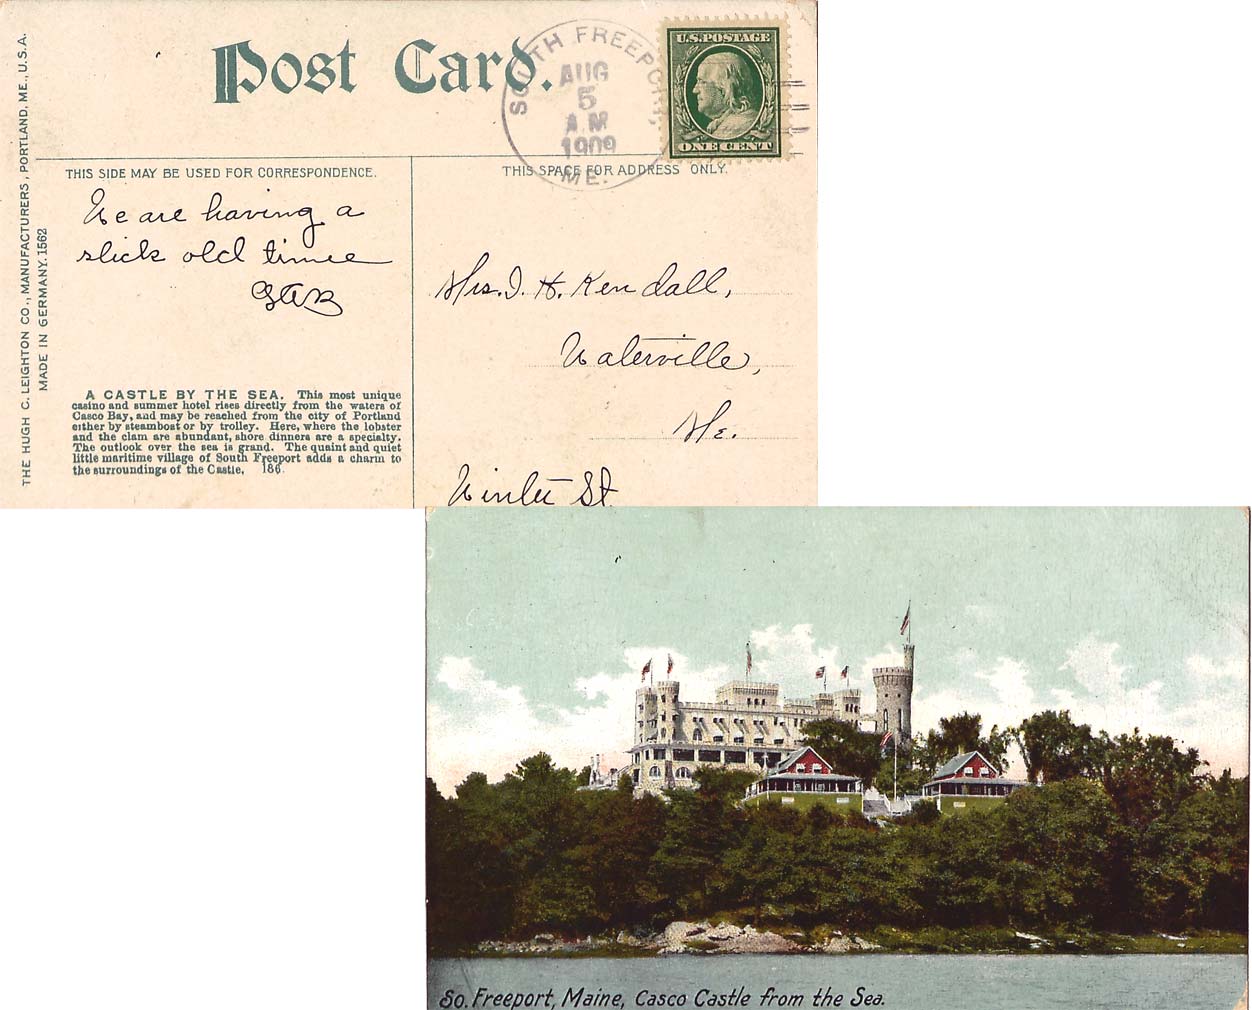 THE HUGH C. LEIGHTON CO., MANUFACTURERS, PORTLAND, ME., U.S.A.
MADE IN GERMANY. 1562
Post Card.
SOUTH FREEPORT,
AUG
5
A.M
1909
ME.
U.S. POSTAGE
ONE CENT
THIS SIDE MAY BE USED FOR CORRESPONDENCE.
We are having a
slick old time
GAB
A CASTLE BY THE SEA. This most unique
casino and summer hotel rises directly from the waters of
Casco Bay, and may be reached from the city of Portland
either by steamboat or by trolley. Here, where the lobster
and the clam are abundant, shore dinners are a specialty.
The outlook over the sea is grand. The quaint and quiet
little maritime village of South Freeport adds a charm to
the surroundings of the Castle. 186
THIS SPACE FOR ADDRESS ONLY.
Mrs. I. H. Kendall,
Waterville,
Me.
Winter St.
So. Freeport, Maine, Casco Castle from the Sea.